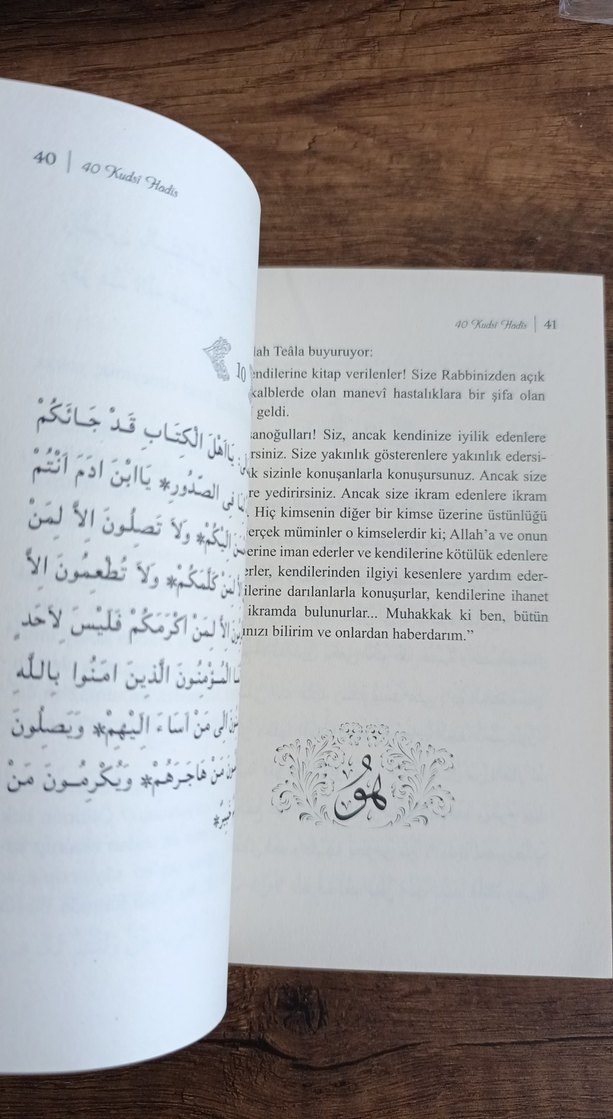 40 | 40 Kudsî Hadis
10
يَااَهْلَ الْكِتَابِ قَدْ جَائَكُمْ
فِى الصُّدُورِ* يَاابْنَ ادَمَ اَنْتُمْ
اِلَيْكُمْ* وَلاَ تَصِلُونَ اِلاَّ لِمَنْ
لِمَنْ كَلَّمَكُمْ* وَلاَ تُطْعِمُونَ اِلاَّ
اِلاَّ لِمَنْ اَكْرَمَكُمْ فَلَيْسَ لِاَحَدٍ
الْمُؤْمِنُونَ الَّذِينَ امَنُوا بِاللَّهِ
اِلَى مَنْ اَسَاءَ اِلَيْهِمْ* وَيَصِلُونَ
مَنْ هَاجَرَهُمْ* وَيُكْرِمُونَ مَنْ
40 Kudsî Hadis | 41
lah Teâla buyuruyor:
endilerine kitap verilenler! Size Rabbinizden açık
kalblerde olan manevî hastalıklara bir şifa olan
geldi.
anoğulları! Siz, ancak kendinize iyilik edenlere
rsiniz. Size yakınlık gösterenlere yakınlık edersi-
k sizinle konuşanlarla konuşursunuz. Ancak size
re yedirirsiniz. Ancak size ikram edenlere ikram
Hiç kimsenin diğer bir kimse üzerine üstünlüğü
erçek müminler o kimselerdir ki; Allah’a ve onun
erine iman ederler ve kendilerine kötülük edenlere
erler, kendilerinden ilgiyi kesenlere yardım eder-
ilerine darılanlarla konuşurlar, kendilerine ihanet
ikramda bulunurlar... Muhakkak ki ben, bütün
ınızı bilirim ve onlardan haberdarım.”
هُو